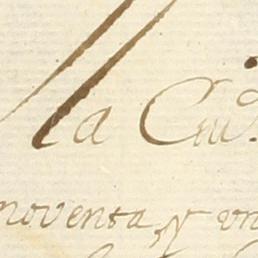 la Ciud.
noventa, y un